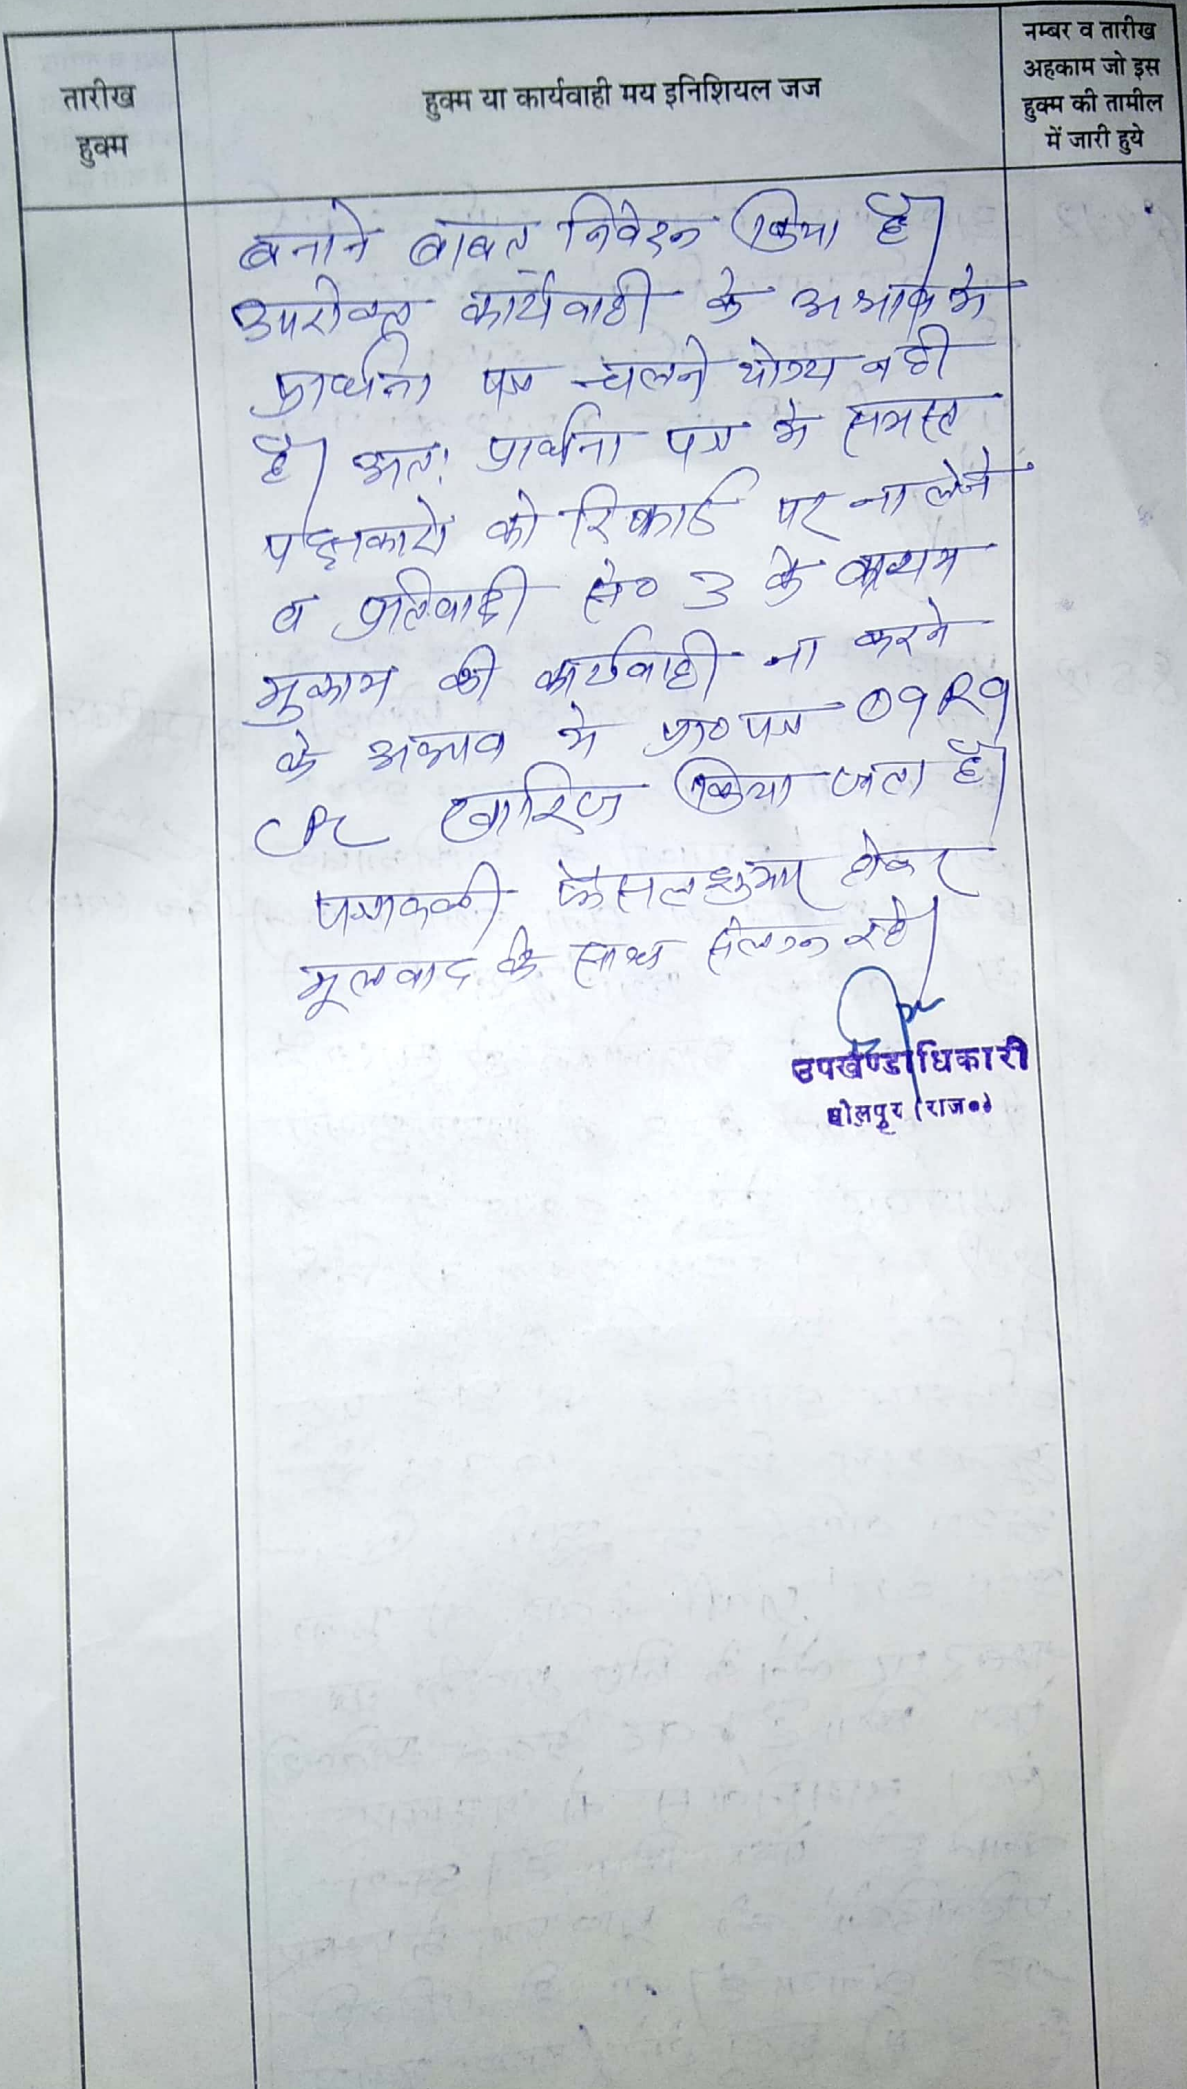 तारीख
हुक्म
हुक्म या कार्यवाही मय इनिशियल जज
नम्बर व तारीख
अहकाम जो इस
हुक्म की तामील
में जारी हुये
बनाने बाबत निवेदन किया है।
उपरोक्त कार्यवाही के अभाव मे
प्रार्थना पत्र चलने योग्य नही
है। अतः प्रार्थना पत्र मे समस्त
पक्षकारो को रिकार्ड पर ना लेने
व प्रतिवादी सं० 3 के कायम
मुकाम की कार्यवाही ना करने
के अभाव मे प्रा० पत्र O9R9
CPC खारिज किया जाता है।
पत्रावली फैसलशुमार होकर
मूलवाद के साथ संलग्न रहे।
उपखण्डाधिकारी
धोलपुर (राज०)